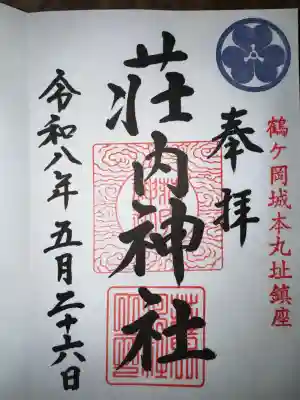 鶴ヶ岡城本丸址鎮座
奉拝
荘内神社
令和八年五月二十六日